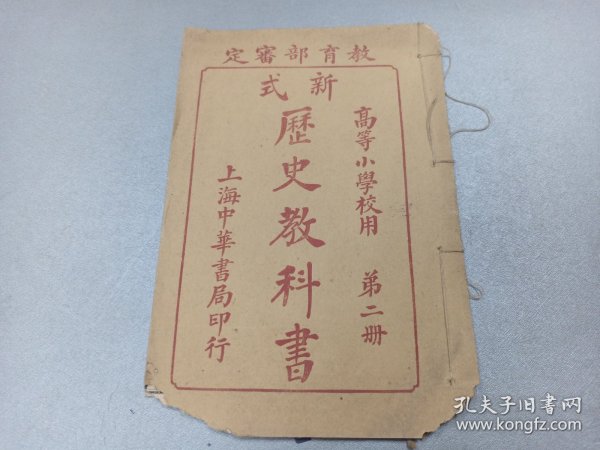 教育部審定
新式
高等小學校用 第二册
歷史教科書
上海中華書局印行
孔夫子旧书网
www.kongfz.com